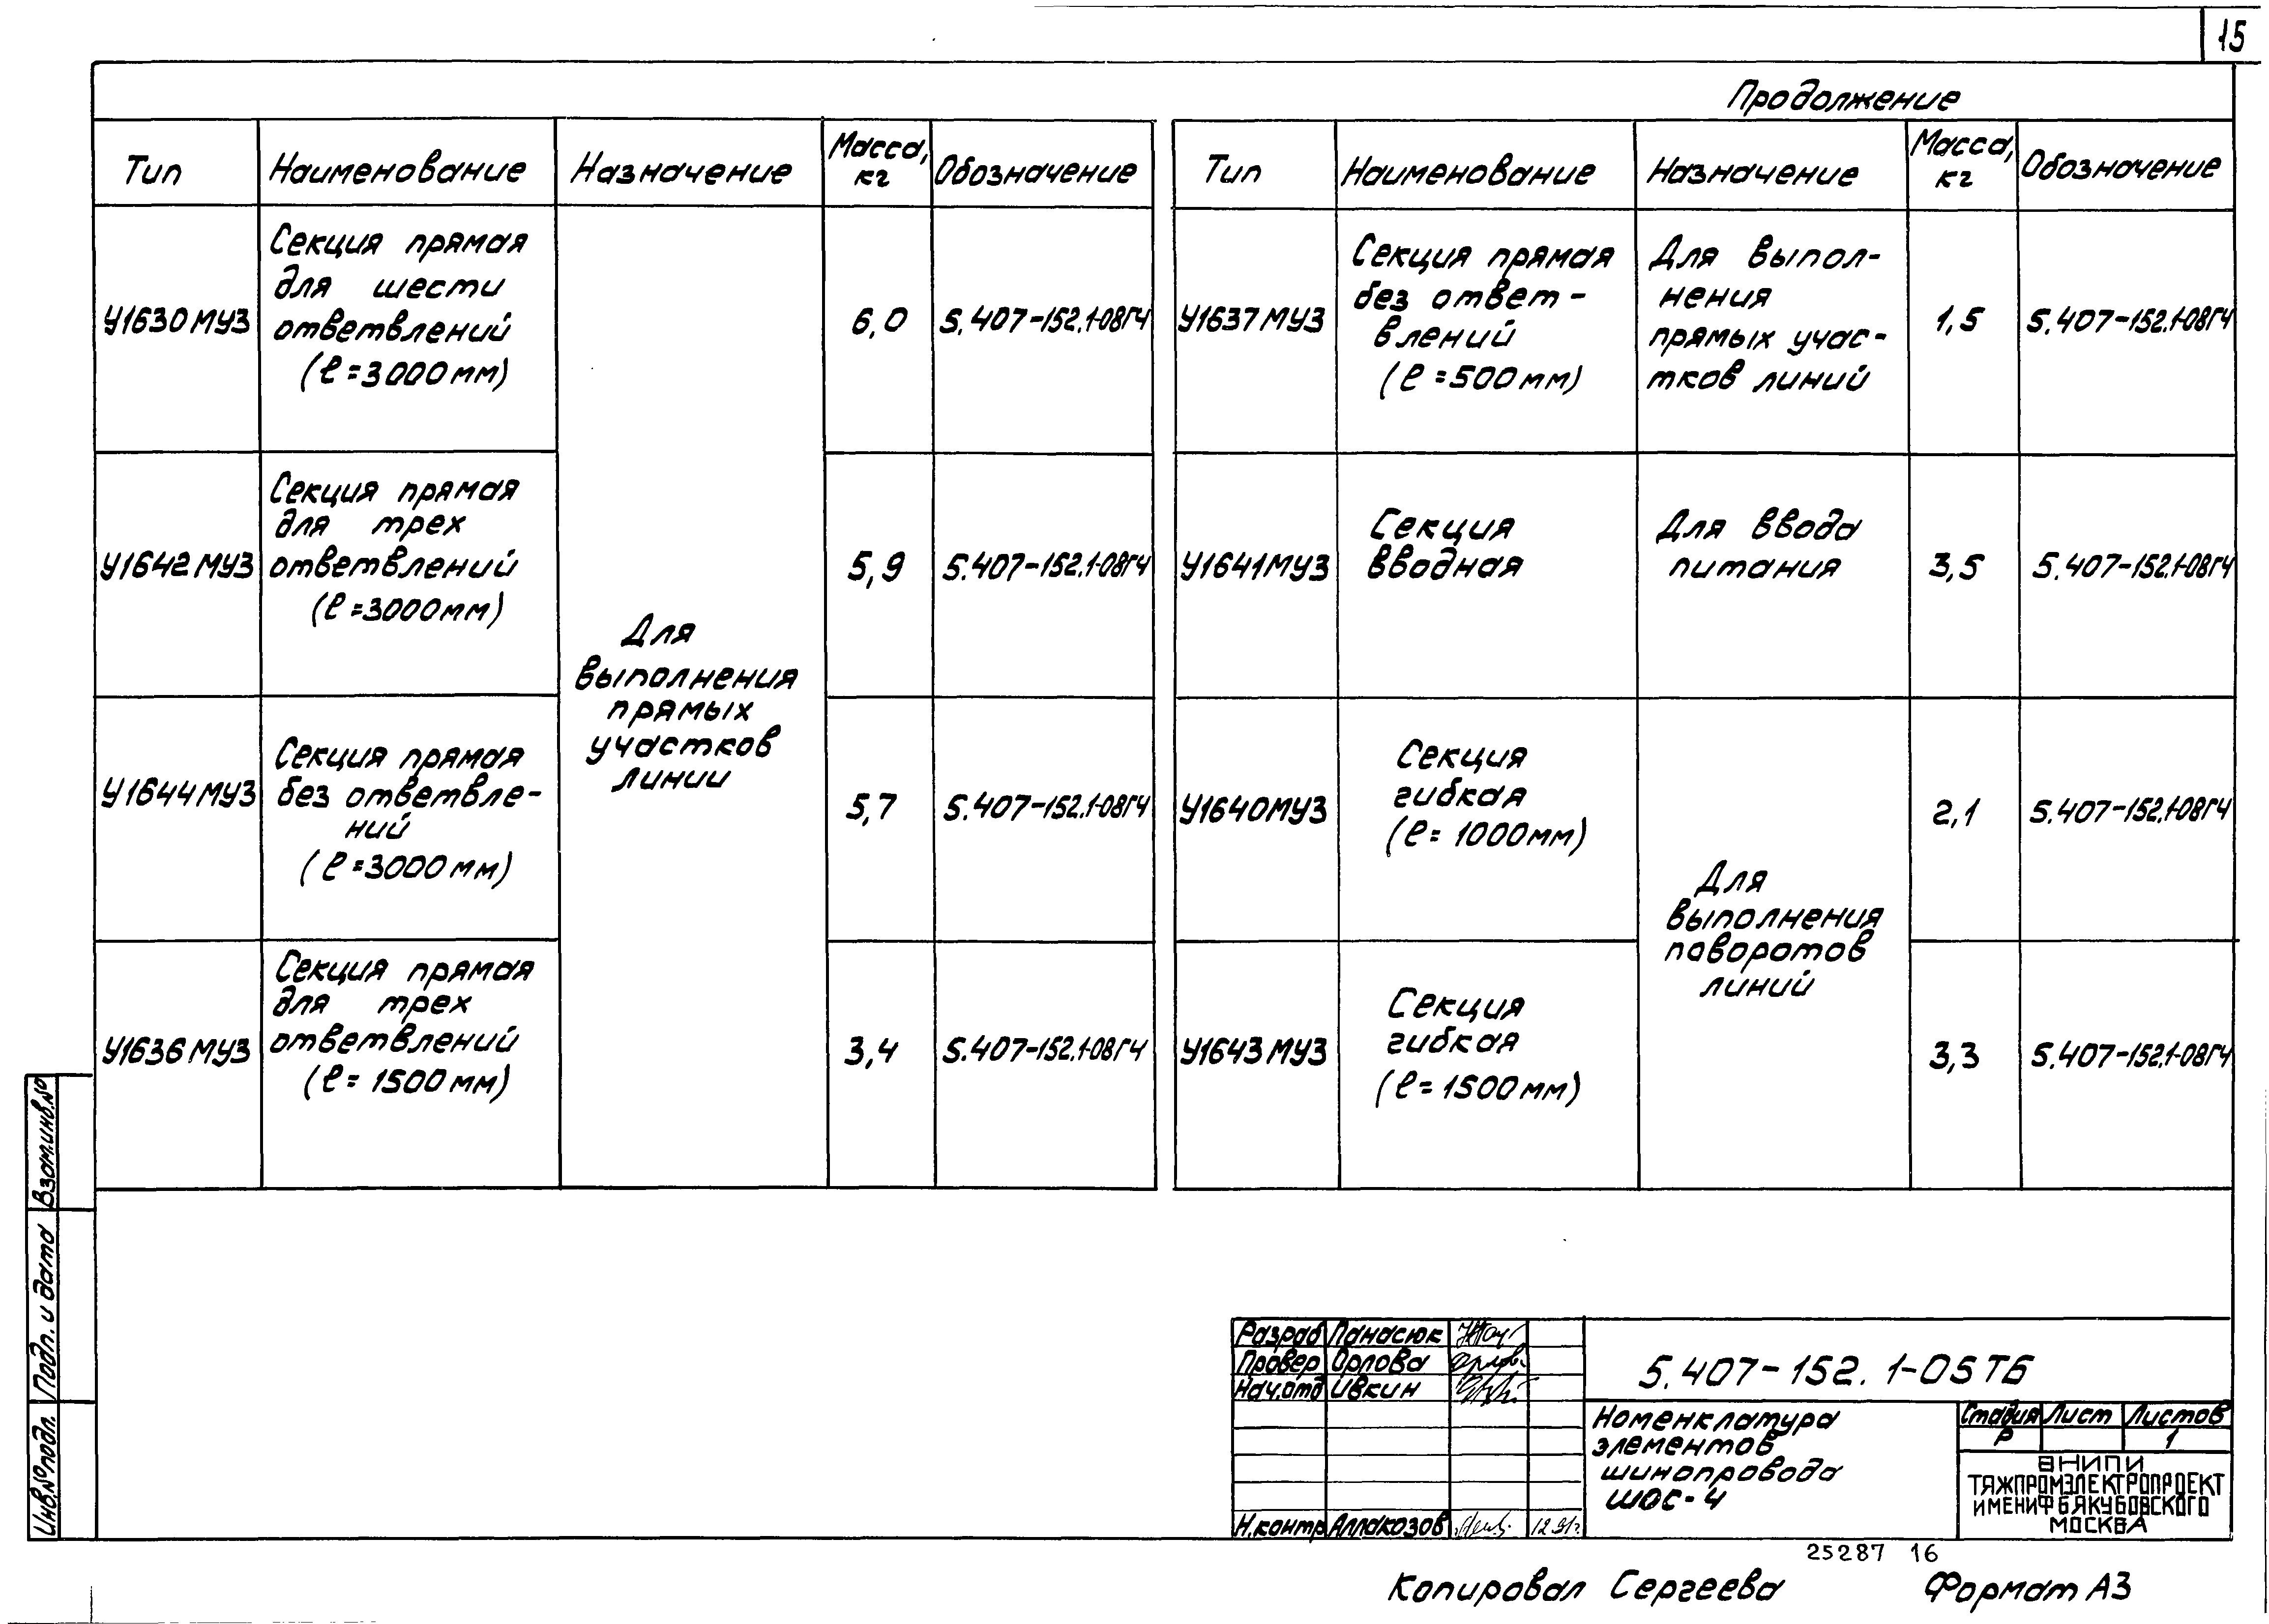 15
Продолжение
Тип
Наименование
Назначение
Масса,
кг
Обозначение
У1630МУ3
Секция прямая
для шести
ответвлений
(ℓ=3000мм)
Для
выполнения
прямых
участков
линии
6,0
5.407-152.1-08ГЧ
У1642МУ3
Секция прямая
для трех
ответвлений
(ℓ=3000мм)
5,9
5.407-152.1-08ГЧ
У1644МУ3
Секция прямая
без ответвле-
ний
(ℓ=3000мм)
5,7
5.407-152.1-08ГЧ
У1636МУ3
Секция прямая
для трех
ответвлений
(ℓ=1500мм)
3,4
5.407-152.1-08ГЧ
Тип
Наименование
Назначение
Масса,
кг
Обозначение
У1637МУ3
Секция прямая
без ответ-
влений
(ℓ=500мм)
Для выпол-
нения
прямых учас-
тков линий
1,5
5.407-152.1-08ГЧ
У1641МУ3
Секция
вводная
Для ввода
питания
3,5
5.407-152.1-08ГЧ
У1640МУ3
Секция
гибкая
(ℓ=1000мм)
Для
выполнения
поворотов
линий
2,1
5.407-152.1-08ГЧ
У1643МУ3
Секция
гибкая
(ℓ=1500мм)
3,3
5.407-152.1-08ГЧ
Взам.инв.№
Подп. и дата
Инв.№подл.
Разраб Панасюк
Провер Орлова
Нач.отд Ивкин
Н.контр Аллакозов 12.91г
5.407-152.1-05ТБ
Номенклатура
элементов
шинопровода
ШОС-4
Стадия Лист Листов
Р 1
ВНИПИ
ТЯЖПРОМЭЛЕКТРОПРОЕКТ
ИМЕНИ Ф Б ЯКУБОВСКОГО
МОСКВА
25287 16
Копировал Сергеева Формат А3